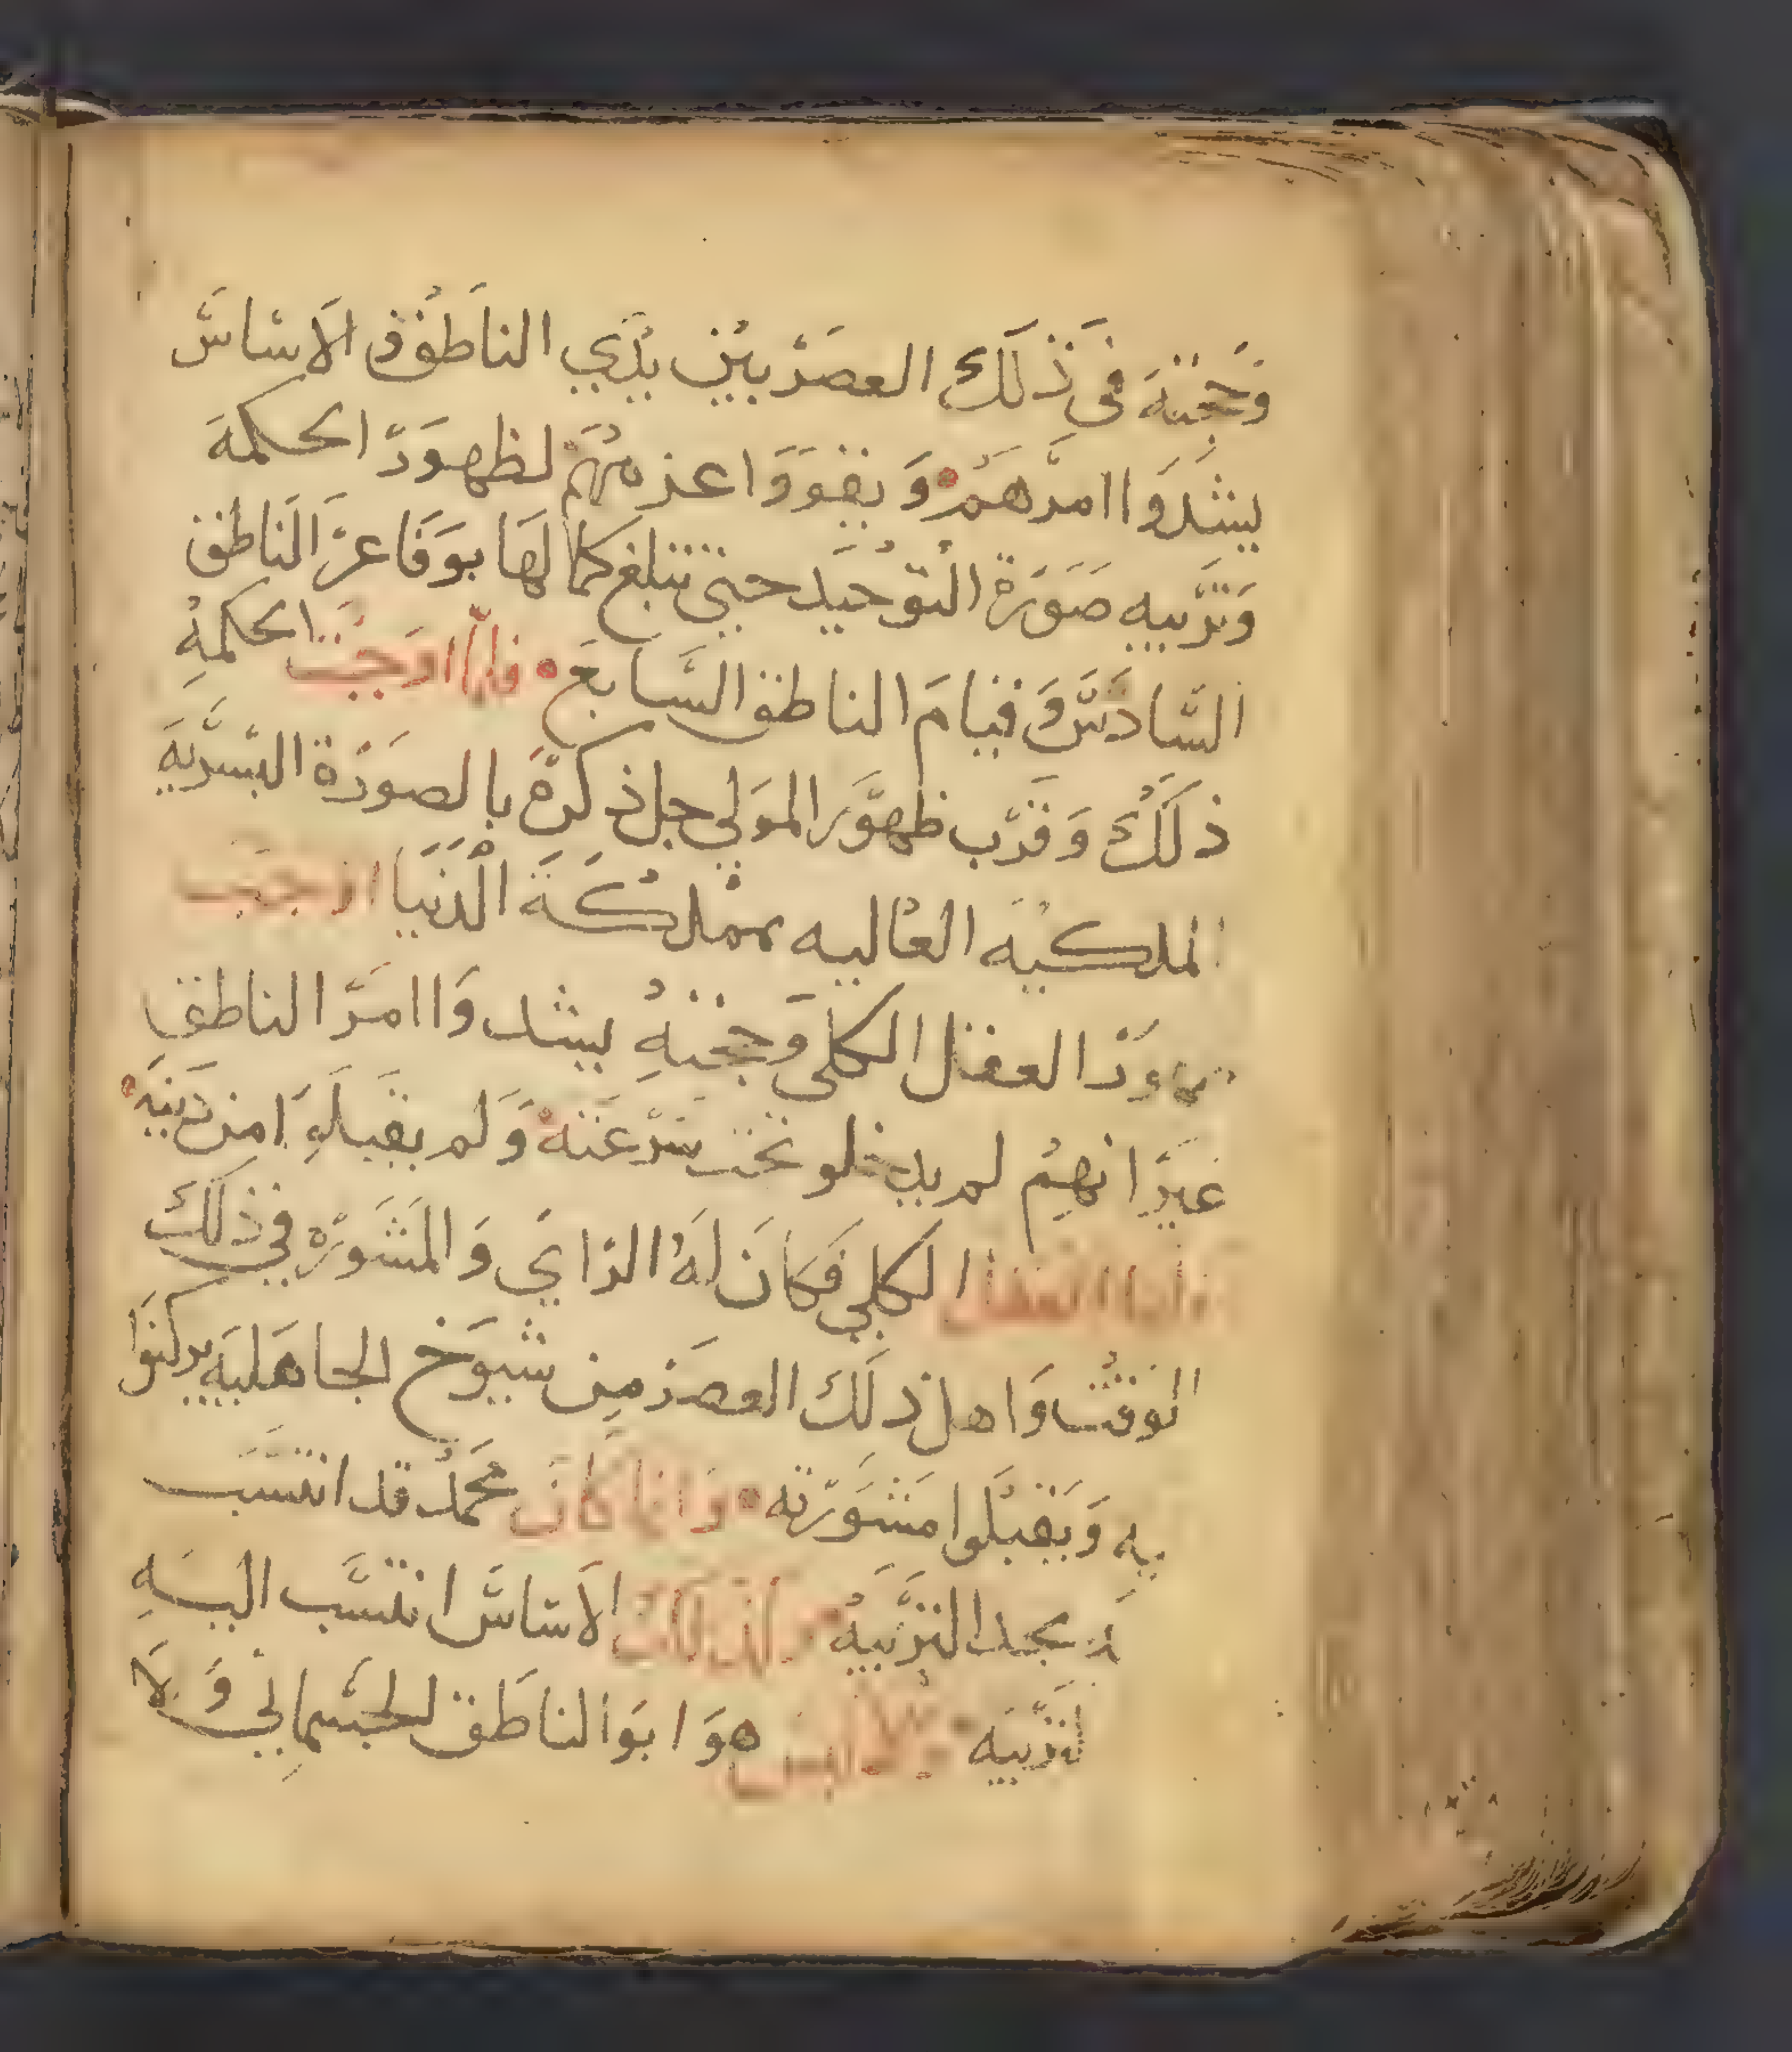 وحجته في ذلك العصر بين يدي الناطق والاساس
يشدوا امرهم ويقووا عزمهم لظهور الحكمه
وتربيه صورة التوحيد حتى تبلغ كمالها بوفا عمر الناطق
السادس وقيام الناطق السابع فلما اوجبت الحكمه
ذلك وقرب ظهور المولى جل ذكره بالصورة البشريه
الملكيه العاليه بمملكة الدنيا اوجبت
العقل الكلي وحجته يشدوا امر الناطق
غير انهم لم يدخلو تحت شرعته ولم يقبلو امن دينه
فاما العقل الكلي فكان له الراي والمشوره في ذلك
الوقت واهل ذلك العصر من شيوخ الجاهليه يركنوا
اليه ويقبلوا مشورته وانما كان محمد قد انتسب
التربيه وكذلك الاساس انتسب اليه
تربيه وكلا ليس هو ابو الناطق الجسماني ولا